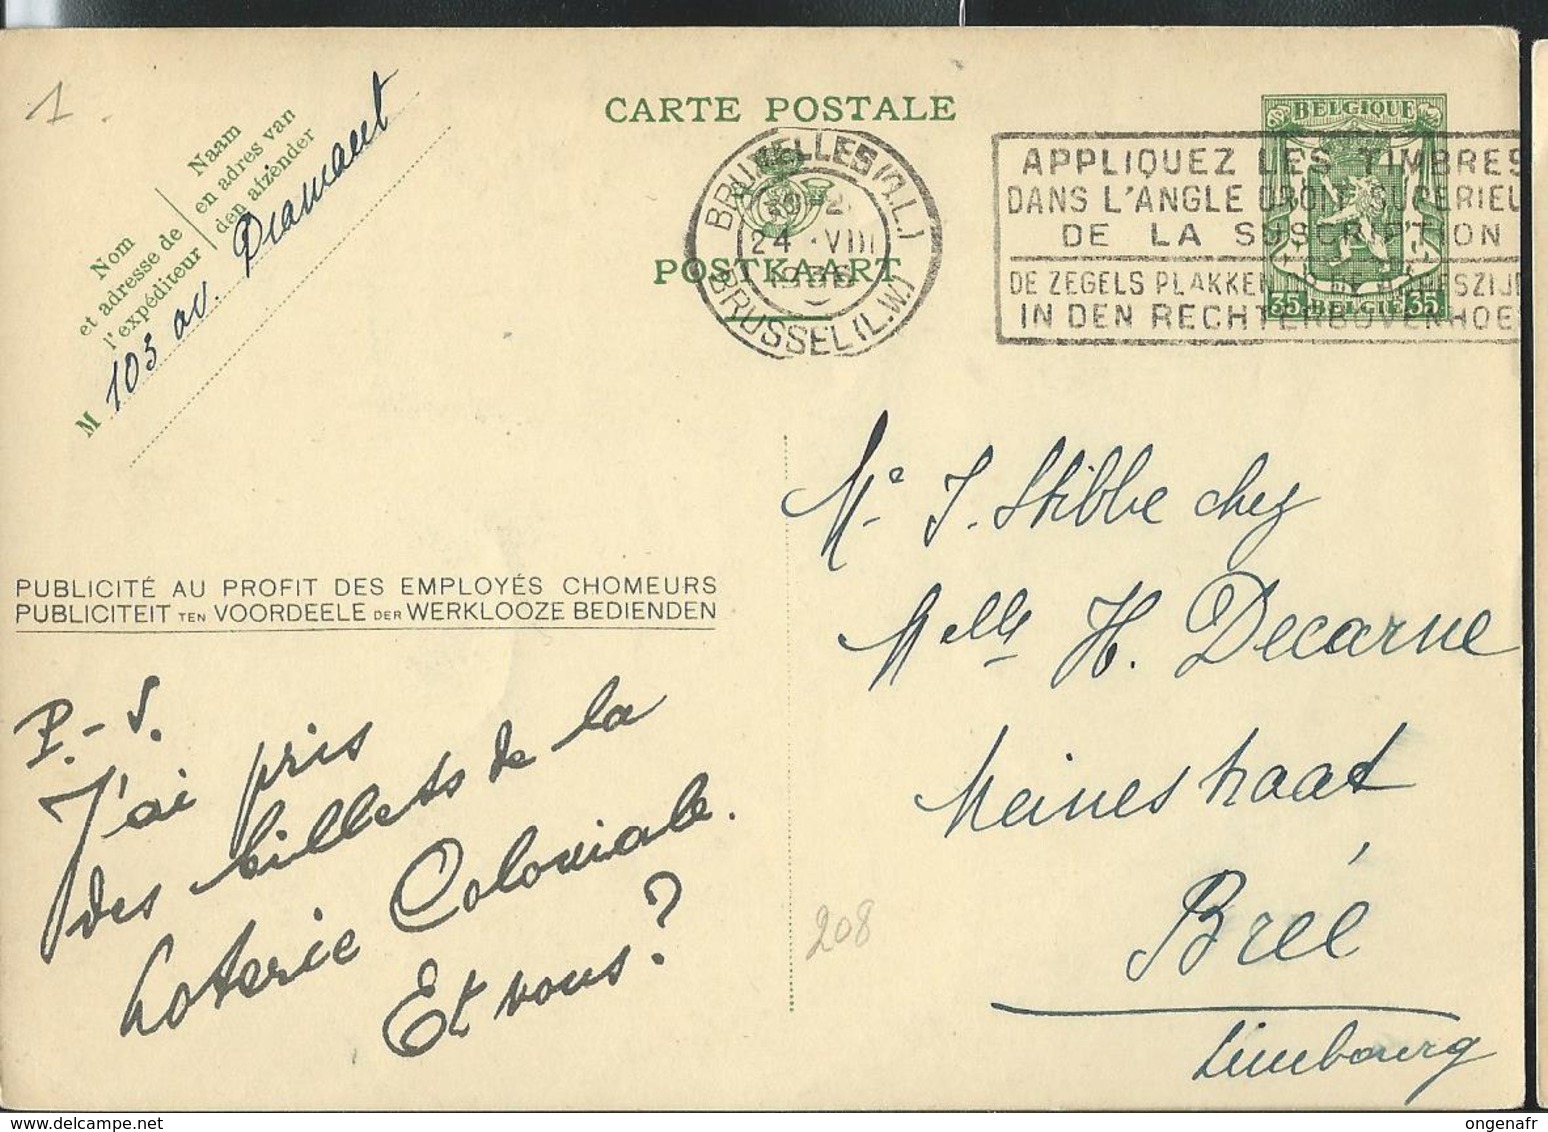 1.
CARTE POSTALE
POSTKAART
Naam
en adres van
den afzender
Nom
et adresse de
l'expéditeur
M 103 av. Diamant
BRUXELLES (Q.L.)
24 VIII
BRUSSEL (L.W.)
APPLIQUEZ LES TIMBRES
DANS L'ANGLE DROIT SUPERIEU
DE LA SUSCRIPTION
DE ZEGELS PLAKKEN
IN DEN RECHTERBOVENHOE
BELGIQUE
35 BELGIË 35
PUBLICITÉ AU PROFIT DES EMPLOYÉS CHOMEURS
PUBLICITEIT TEN VOORDEELE DER WERKLOOZE BEDIENDEN
P.-S.
J'ai pris
des billets de la
Loterie Coloniale.
Et vous?
Me J. Stibbe chez
Melle H. Decarne
Meinestraat
Breé
Limbourg
208
ongenafr